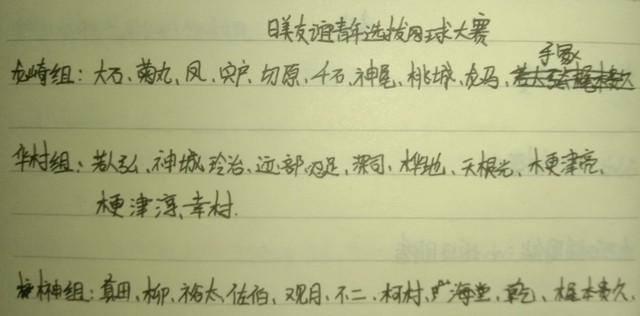 日美友谊青年选拔网球大赛
手冢
龙崎组：大石、菊丸、凤、宍户、切原、千石、神尾、桃城、龙马、
华村组：若人弘、神城玲治、迹部、忍足、深司、桦地、天根光、木更津亮、
木更津淳、幸村.
榊组：真田、柳、裕太、佐伯、观月、不二、柯村、海堂、乾、梶本贵久.